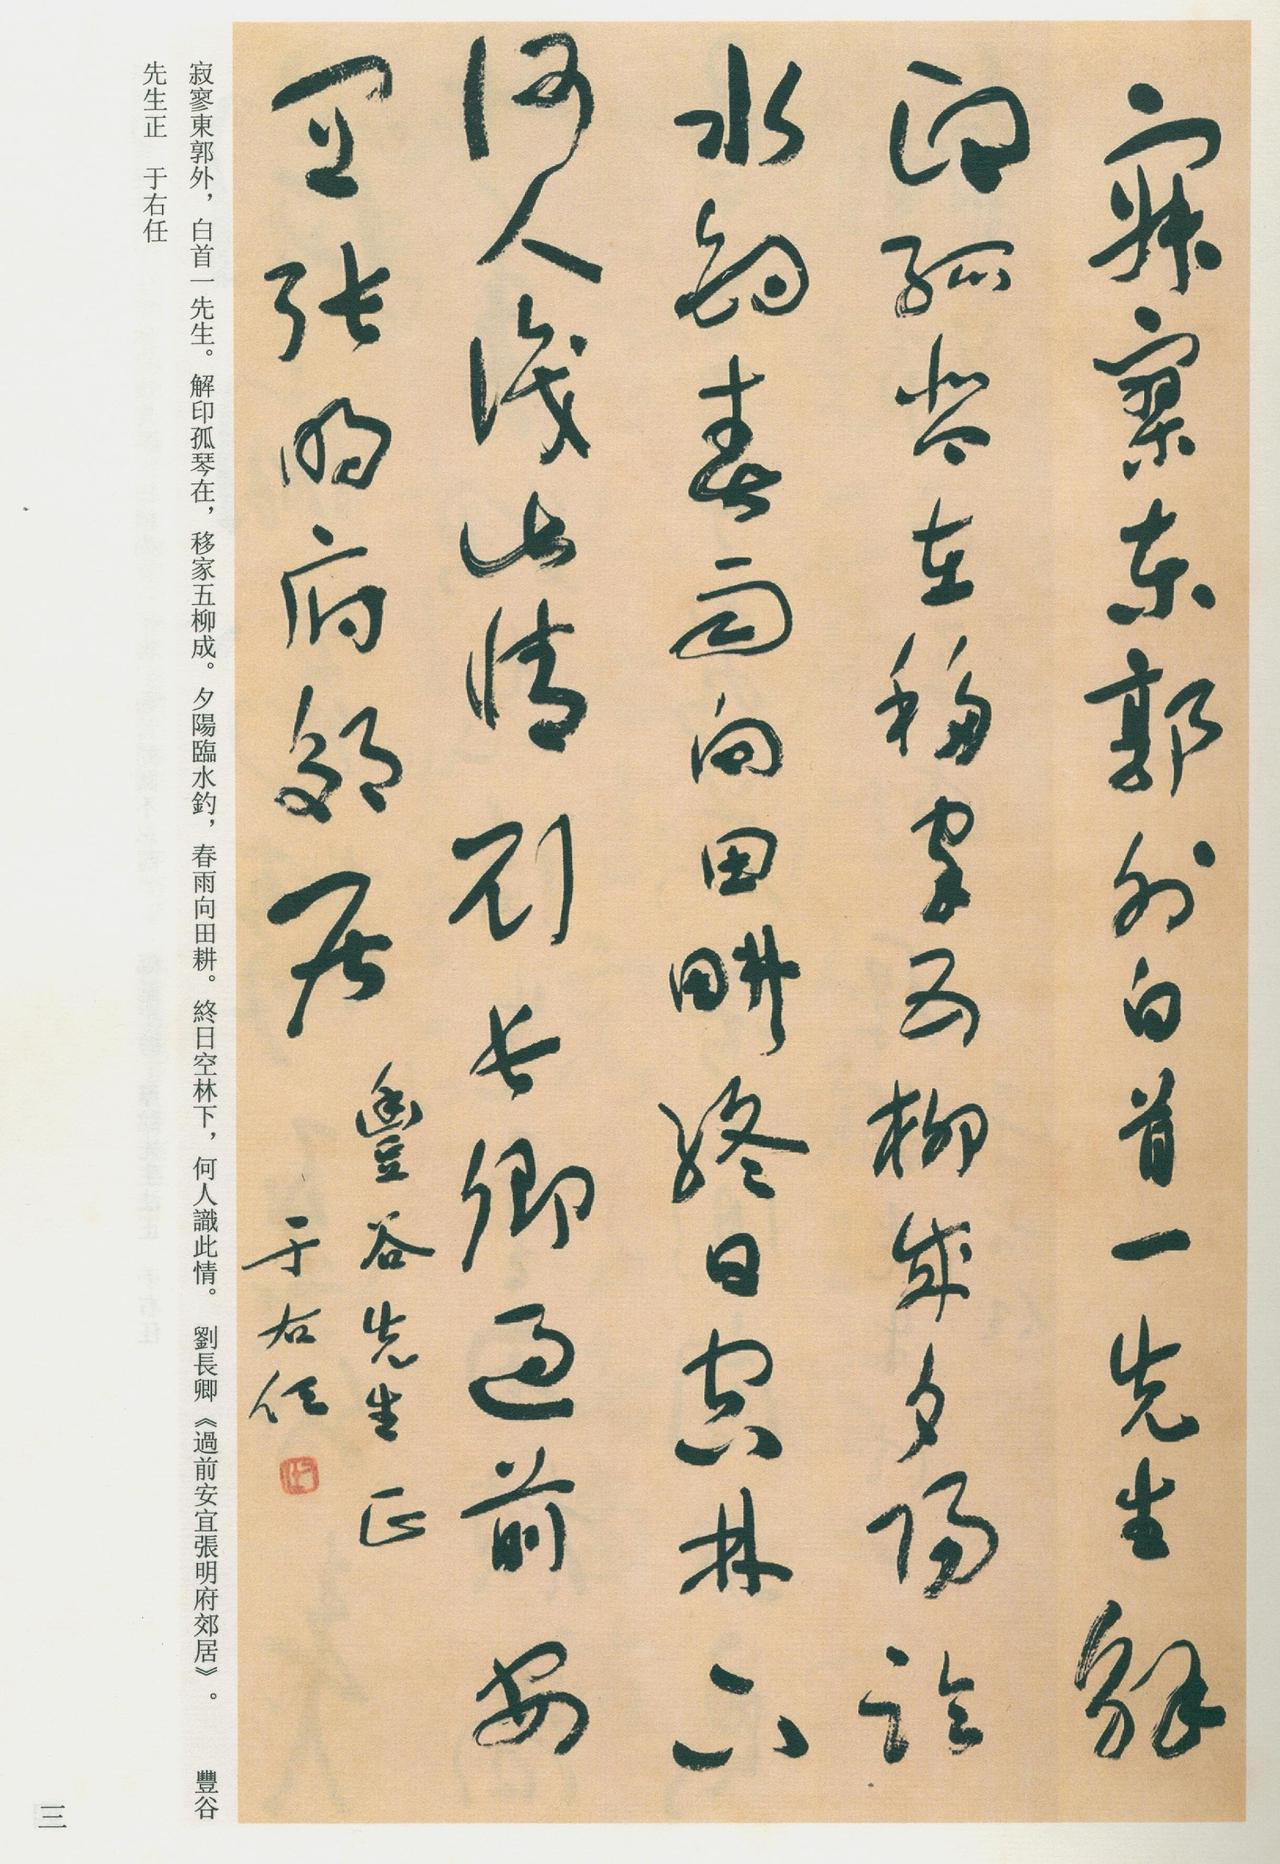 寂寥東郭外白首一先生解
印孤琴在移家五柳成夕陽臨
水釣春雨向田耕終日空林下
何人識此情劉長卿過前安
宜張明府郊居
豐谷先生正
于右任
寂寥東郭外，白首一先生。解印孤琴在，移家五柳成。夕陽臨水釣，春雨向田耕。終日空林下，何人識此情。 劉長卿《過前安宜張明府郊居》。 豐谷
先生正 于右任
三